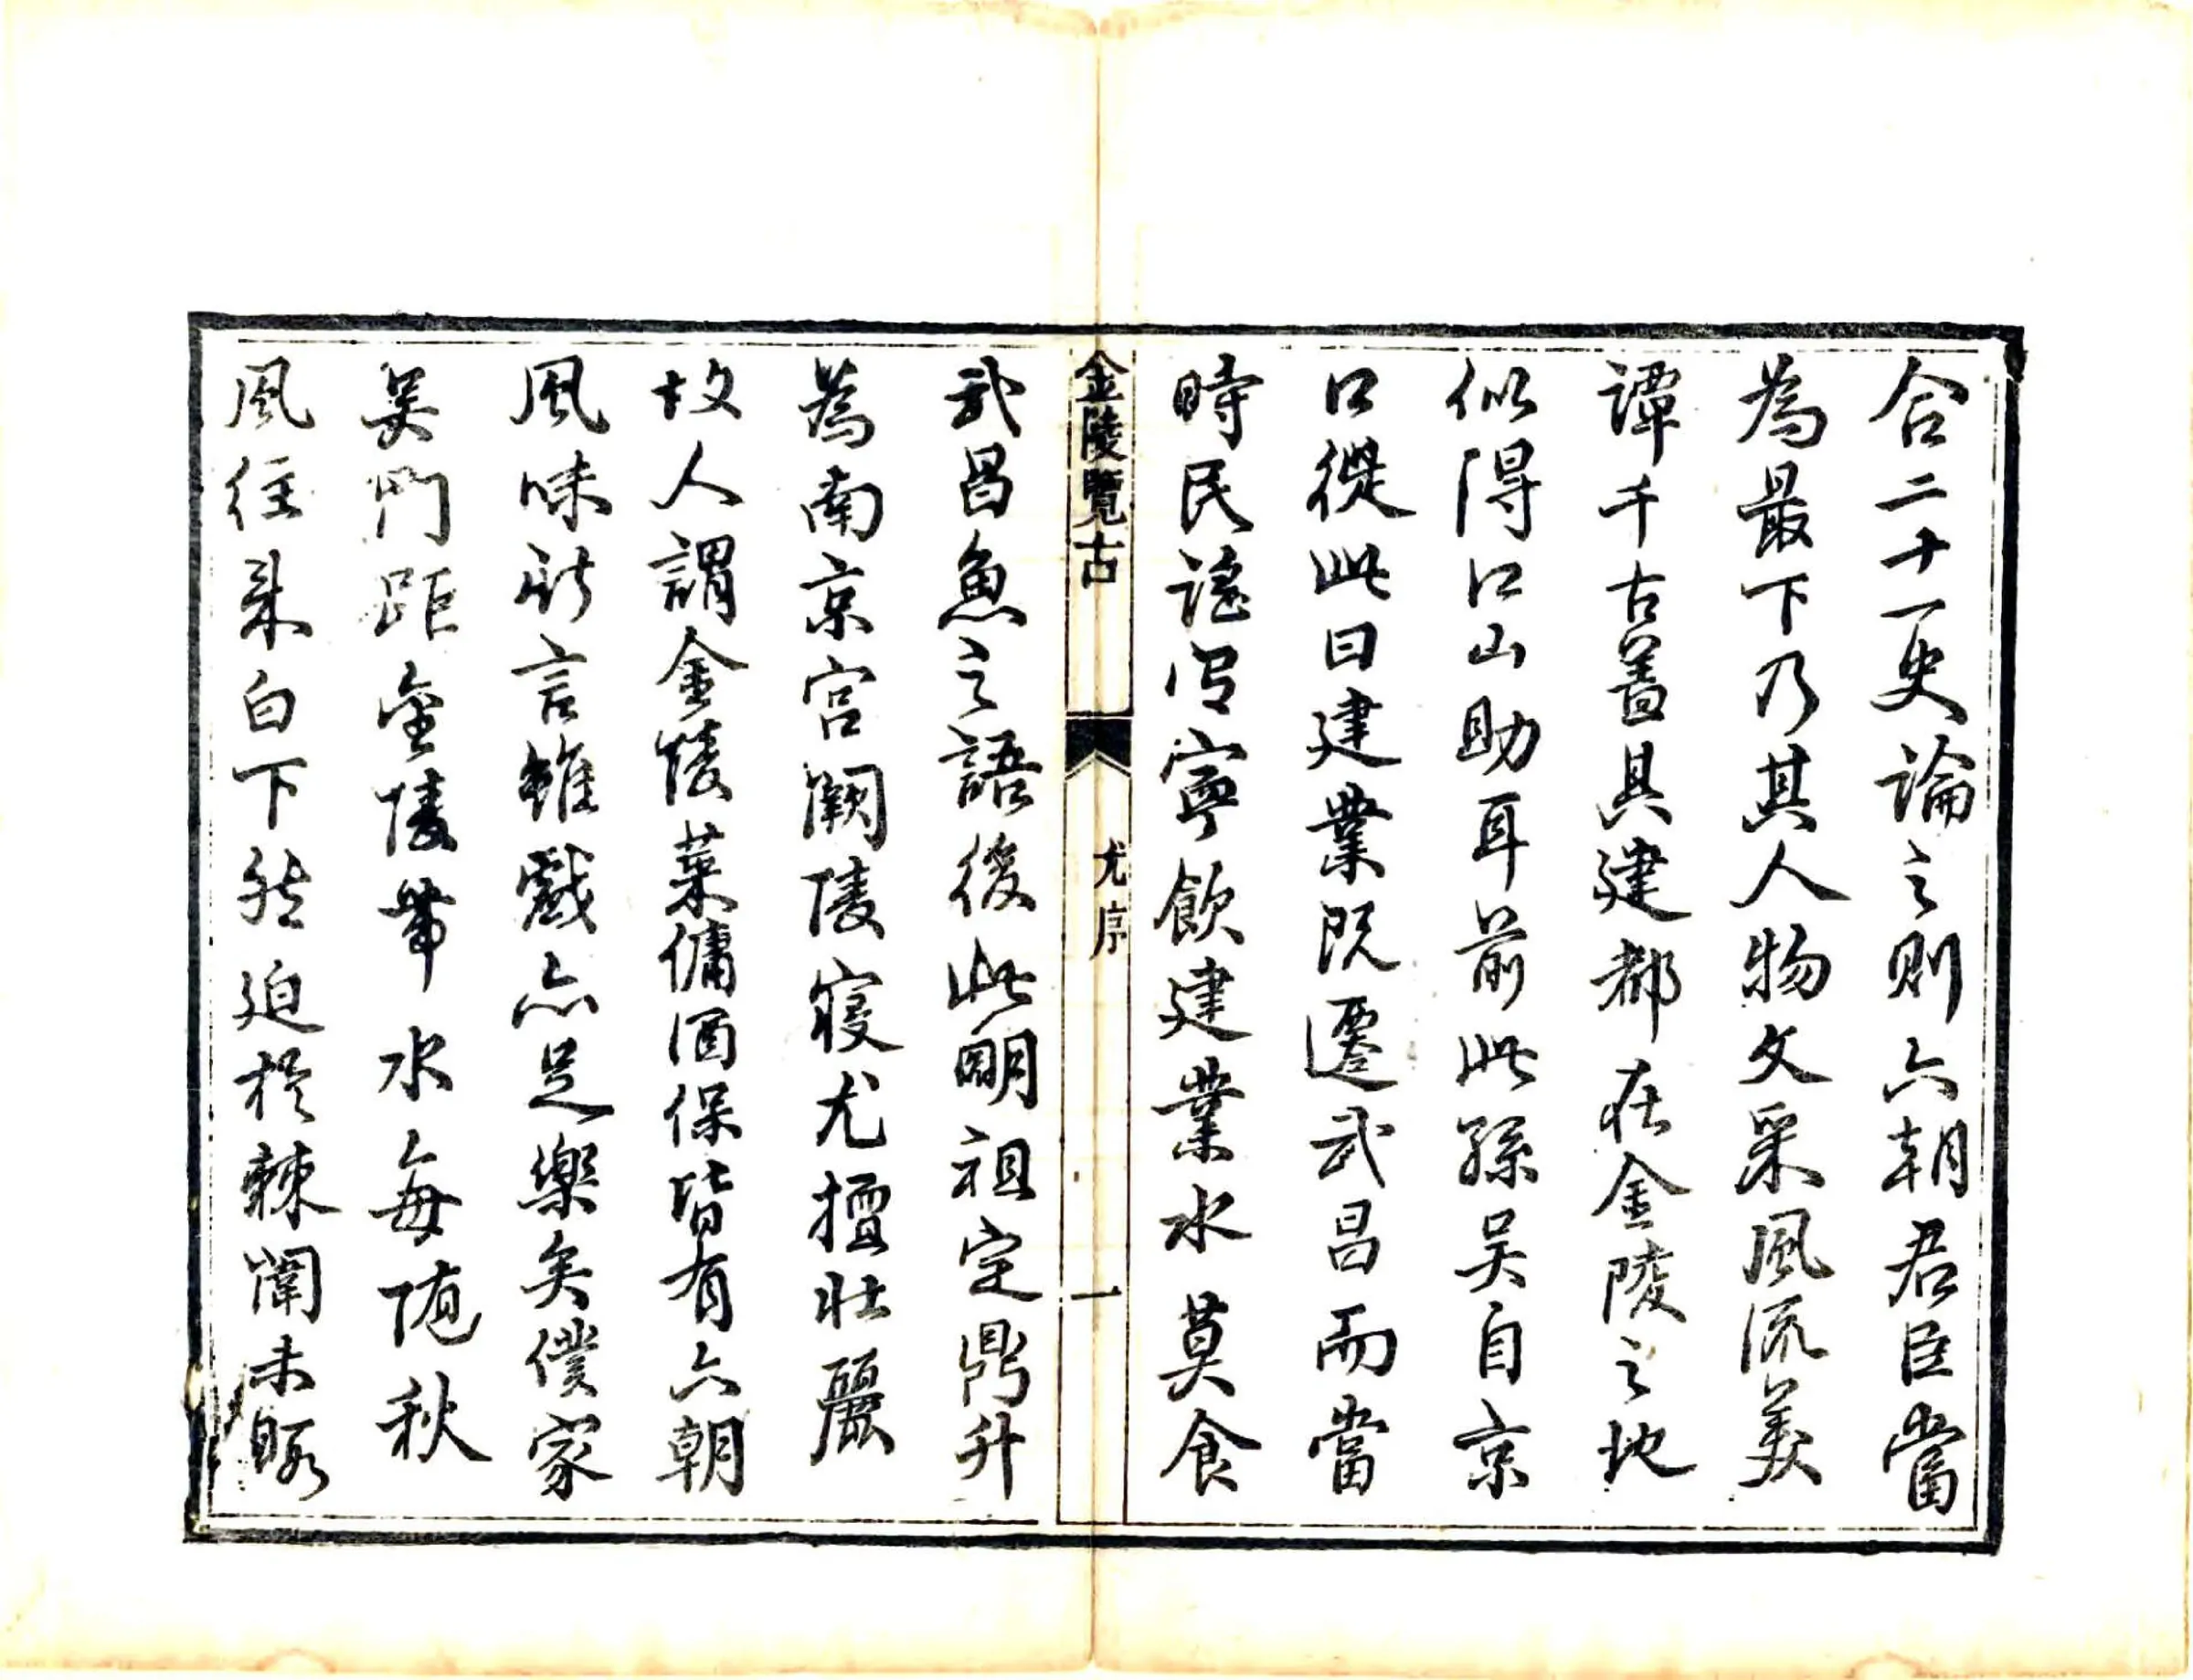 合二十一史論之則六朝君臣當
為最下乃其人物文采風流美
譚千古葢其建都在金陵之地
似得江山助耳前此孫吳自京
口徙此曰建業既遷武昌而當
時民謡有寧飲建業水莫食
金陵覽古
尤序
一
武昌魚之語後此明祖定鼎升
為南京宮闕陵寢尤擅壯麗
故人謂金陵菜傭酒保皆有六朝
風味斯言雖戲亦足樂矣僕家
吳門距金陵帶水每随秋
風往来白下然迫於棘闈未暇